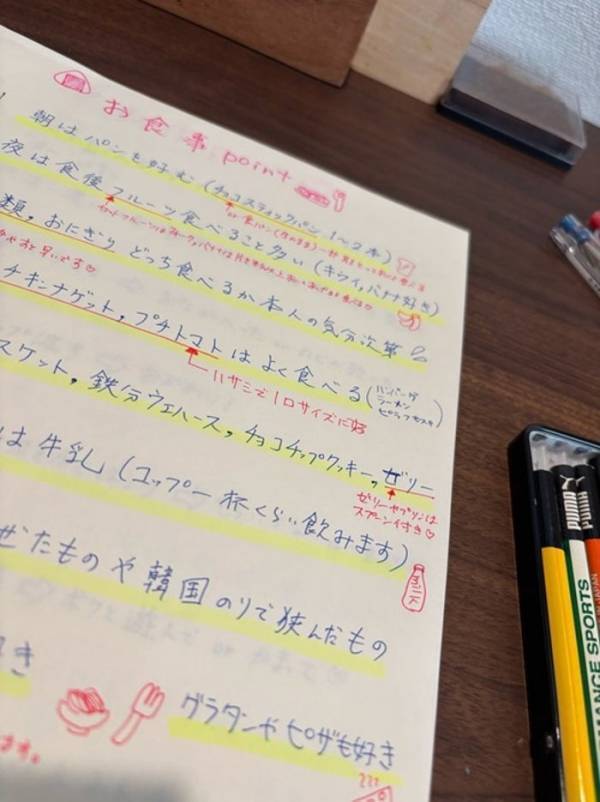 お食事point
朝はパンを好む(チョコスティックパン1〜2本)
夜は食後フルーツ食べること多い(キウイ,バナナ好き)
類,おにぎり どっち食べるか本人の気分次第
チキンナゲット,プチトマトはよく食べる(ハンバーグ
ラーメン
ピラフもスキ)
ハサミで1口サイズに♡
スケット,鉄分ウエハース,チョコチップクッキー,ゼリー
ゼリーやプリンは
スプーン付き♡
は牛乳(コップ一杯くらい飲みます)
ミルク
ぜたものや韓国のりで狭んだもの
き
グラタンやピザも好き
ます。
PUMA
PUMA
MANCE SPORTS
JAPAN